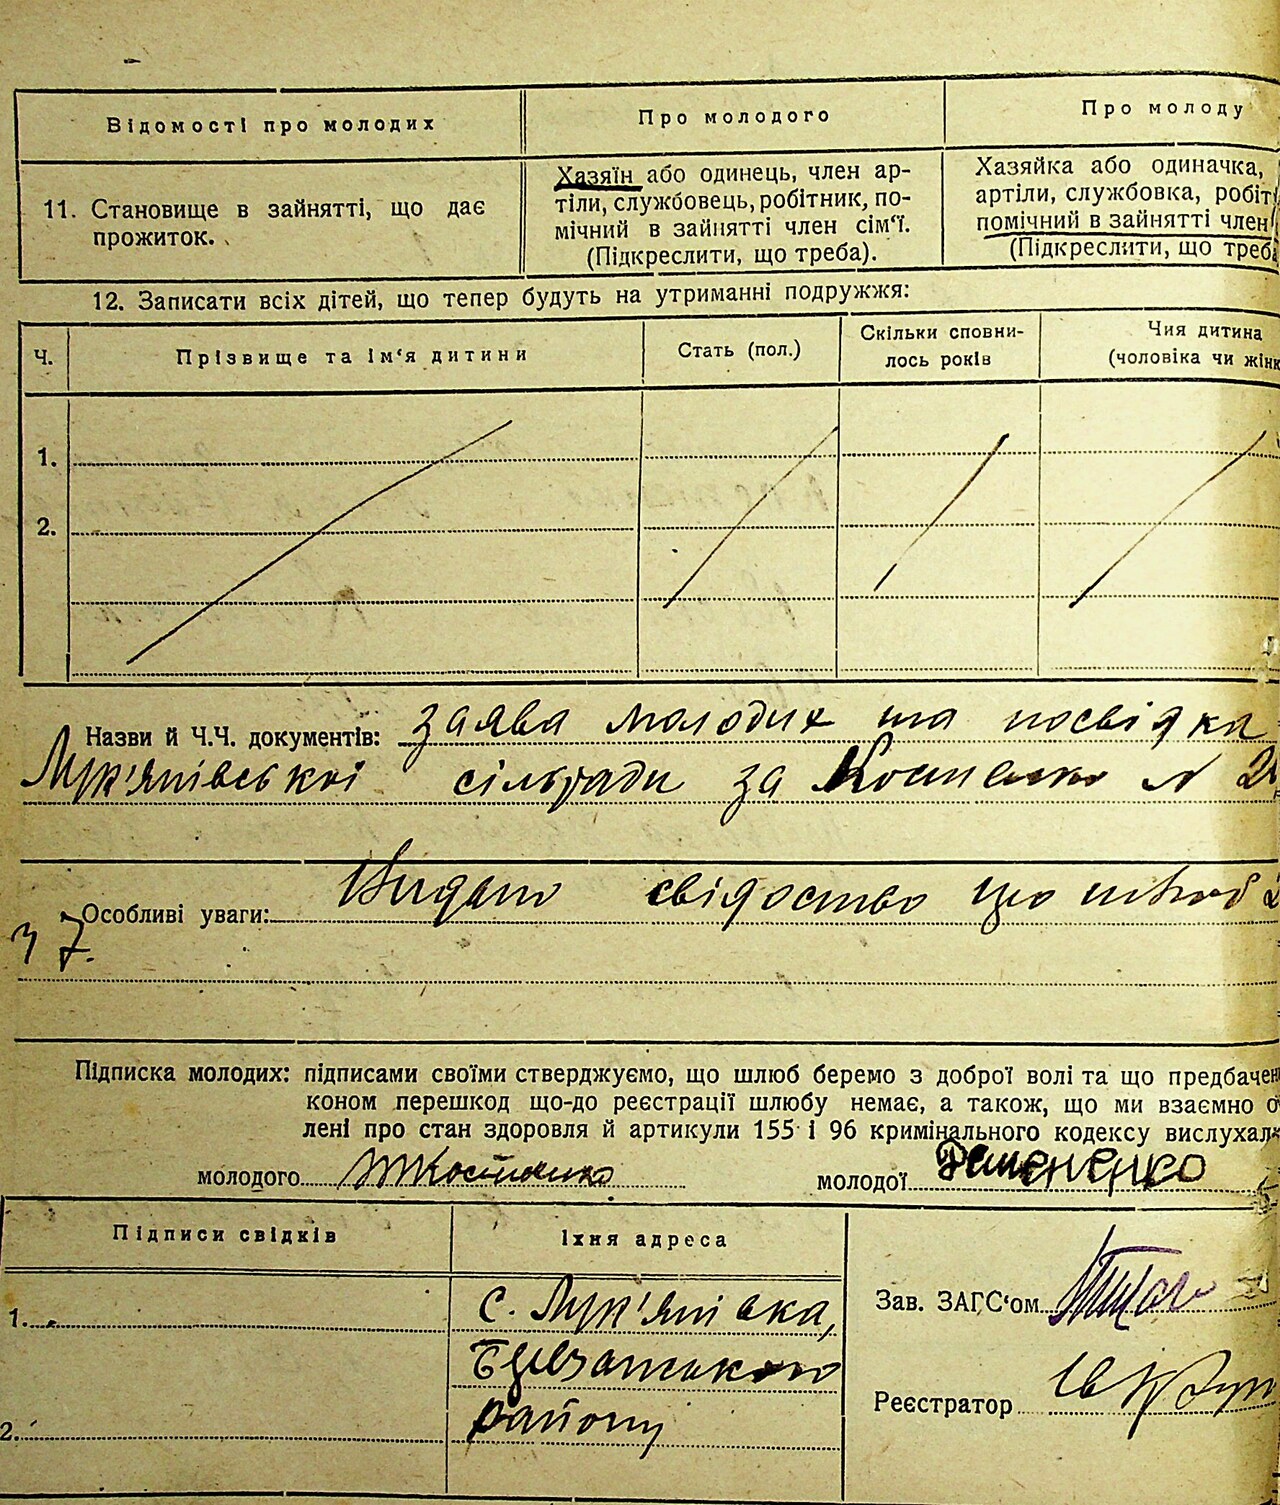 Відомості про молодих
Про молодого
Про молоду
11. Становище в зайнятті, що дає
прожиток.
Хазяїн або одинець, член ар-
тілі, службовець, робітник, по-
мічний в зайнятті член сім‘ї.
(Підкреслити, що треба).
Хазяйка або одиначка,
артілі, службовка, робіт
помічний в зайнятті член
(Підкреслити, що треба
12. Записати всіх дітей, що тепер будуть на утриманні подружжя:
Ч.
Прізвище та ім‘я дитини
Стать (пол.)
Скільки сповни-
лось років
Чия дитина
(чоловіка чи жінк
1.
2.
Назви й Ч.Ч. документів: заява молодих та посвідка
Лук'янівської сільради за Костенко N 2
Особливі уваги: Видано свідоство що шлюб
37.
Підписка молодих: підписами своїми стверджуємо, що шлюб беремо з доброї волі та що предбачен
коном перешкод що-до реєстрації шлюбу немає, а також, що ми взаємно о
лені про стан здоровля й артикули 155 і 96 кримінального кодексу вислухал
молодого Костенко
молодої
Підписи свідків
Їхня адреса
1.
с. Лук'янівка,
Березанського
району
2.
Зав. ЗАГС‘ом
Реєстратор